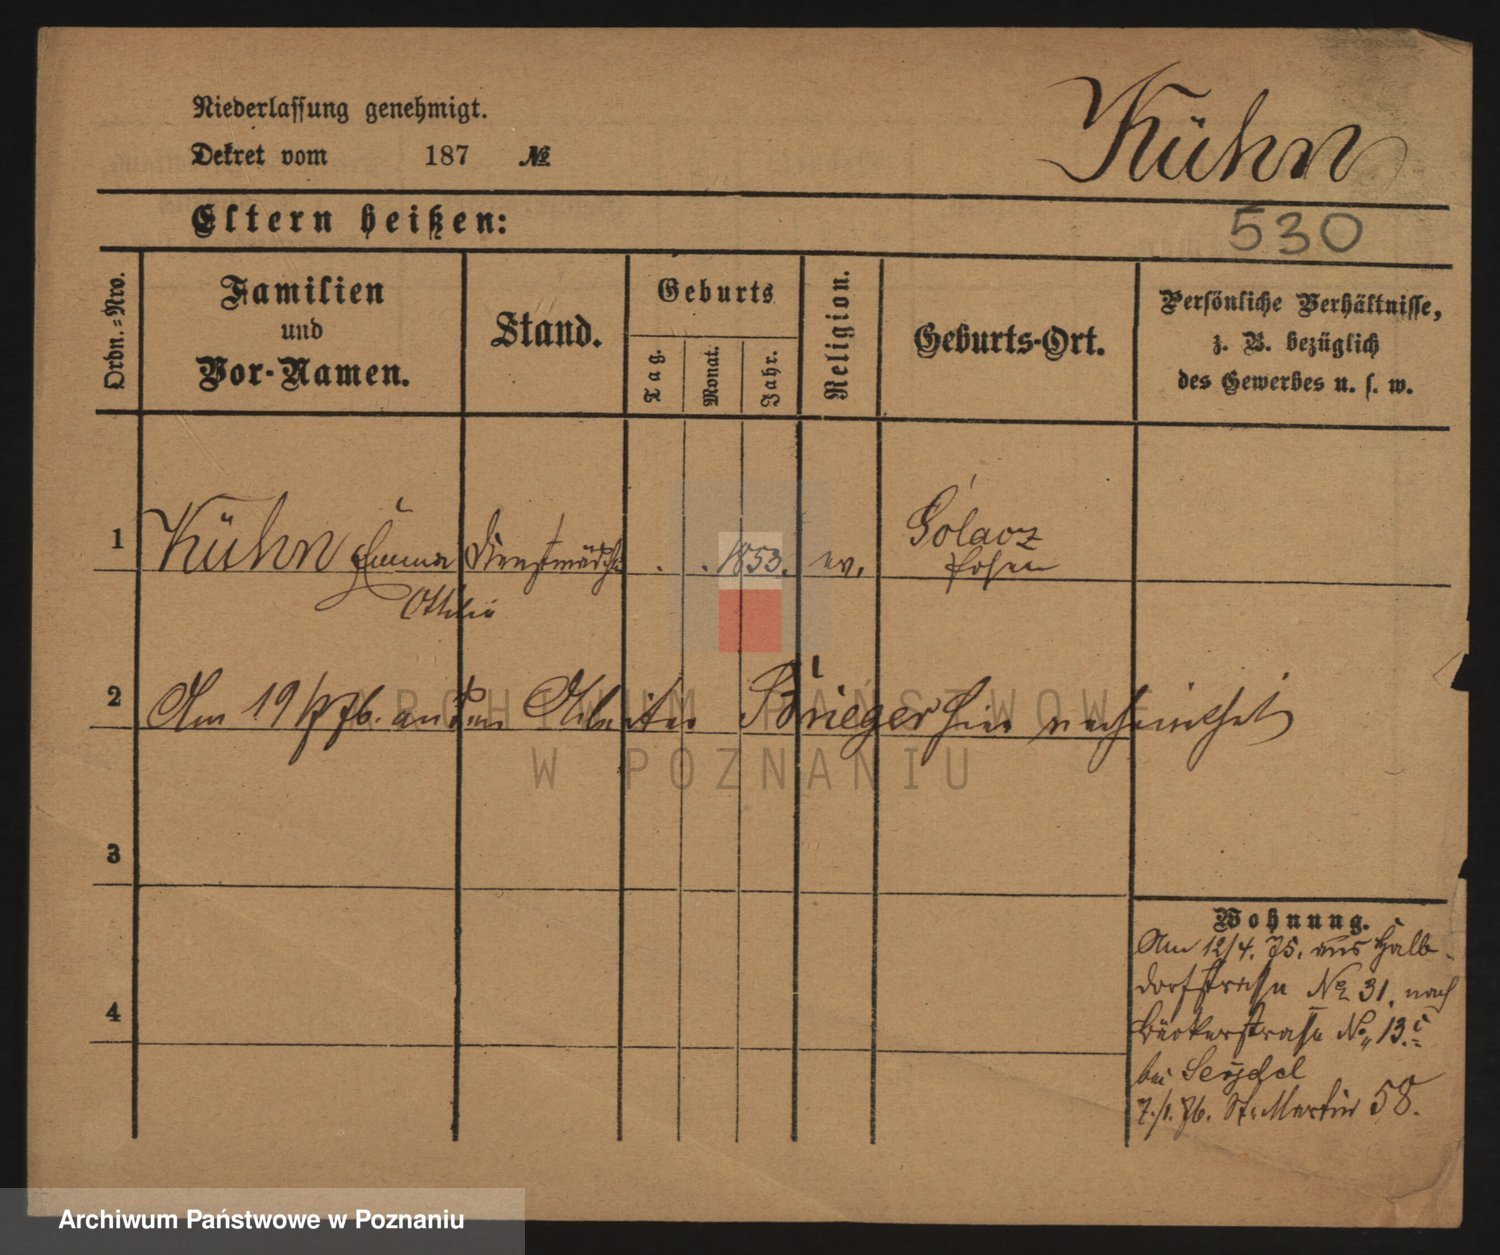 Niederlassung genehmigt.
Dekret vom 187 №
Kühn
Eltern heißen:
530
Ordn.=Nro.
Familien
und
Vor-Namen.
Stand.
Geburts
Tag.
Monat.
Jahr.
Religion.
Geburts-Ort.
Persönliche Verhältnisse,
z. B. bezüglich
des Gewerbes u. s. w.
1 Kühn Emma Dienstmädch . . 1853. ev.
Ottilie
Posen
2 Am 19/ 76. an den Arbeiter Brieger hier verheirathet
ARCHIWUM PAŃSTWOWE
W POZNANIU
3
4
Wohnung.
Am 12/4. 75. aus Halb-
dorfstrasse No 31. nach
Bäckerstrasse No 13.
bei Seydel
7./1. 76. St. Martin 58.
Archiwum Państwowe w Poznaniu